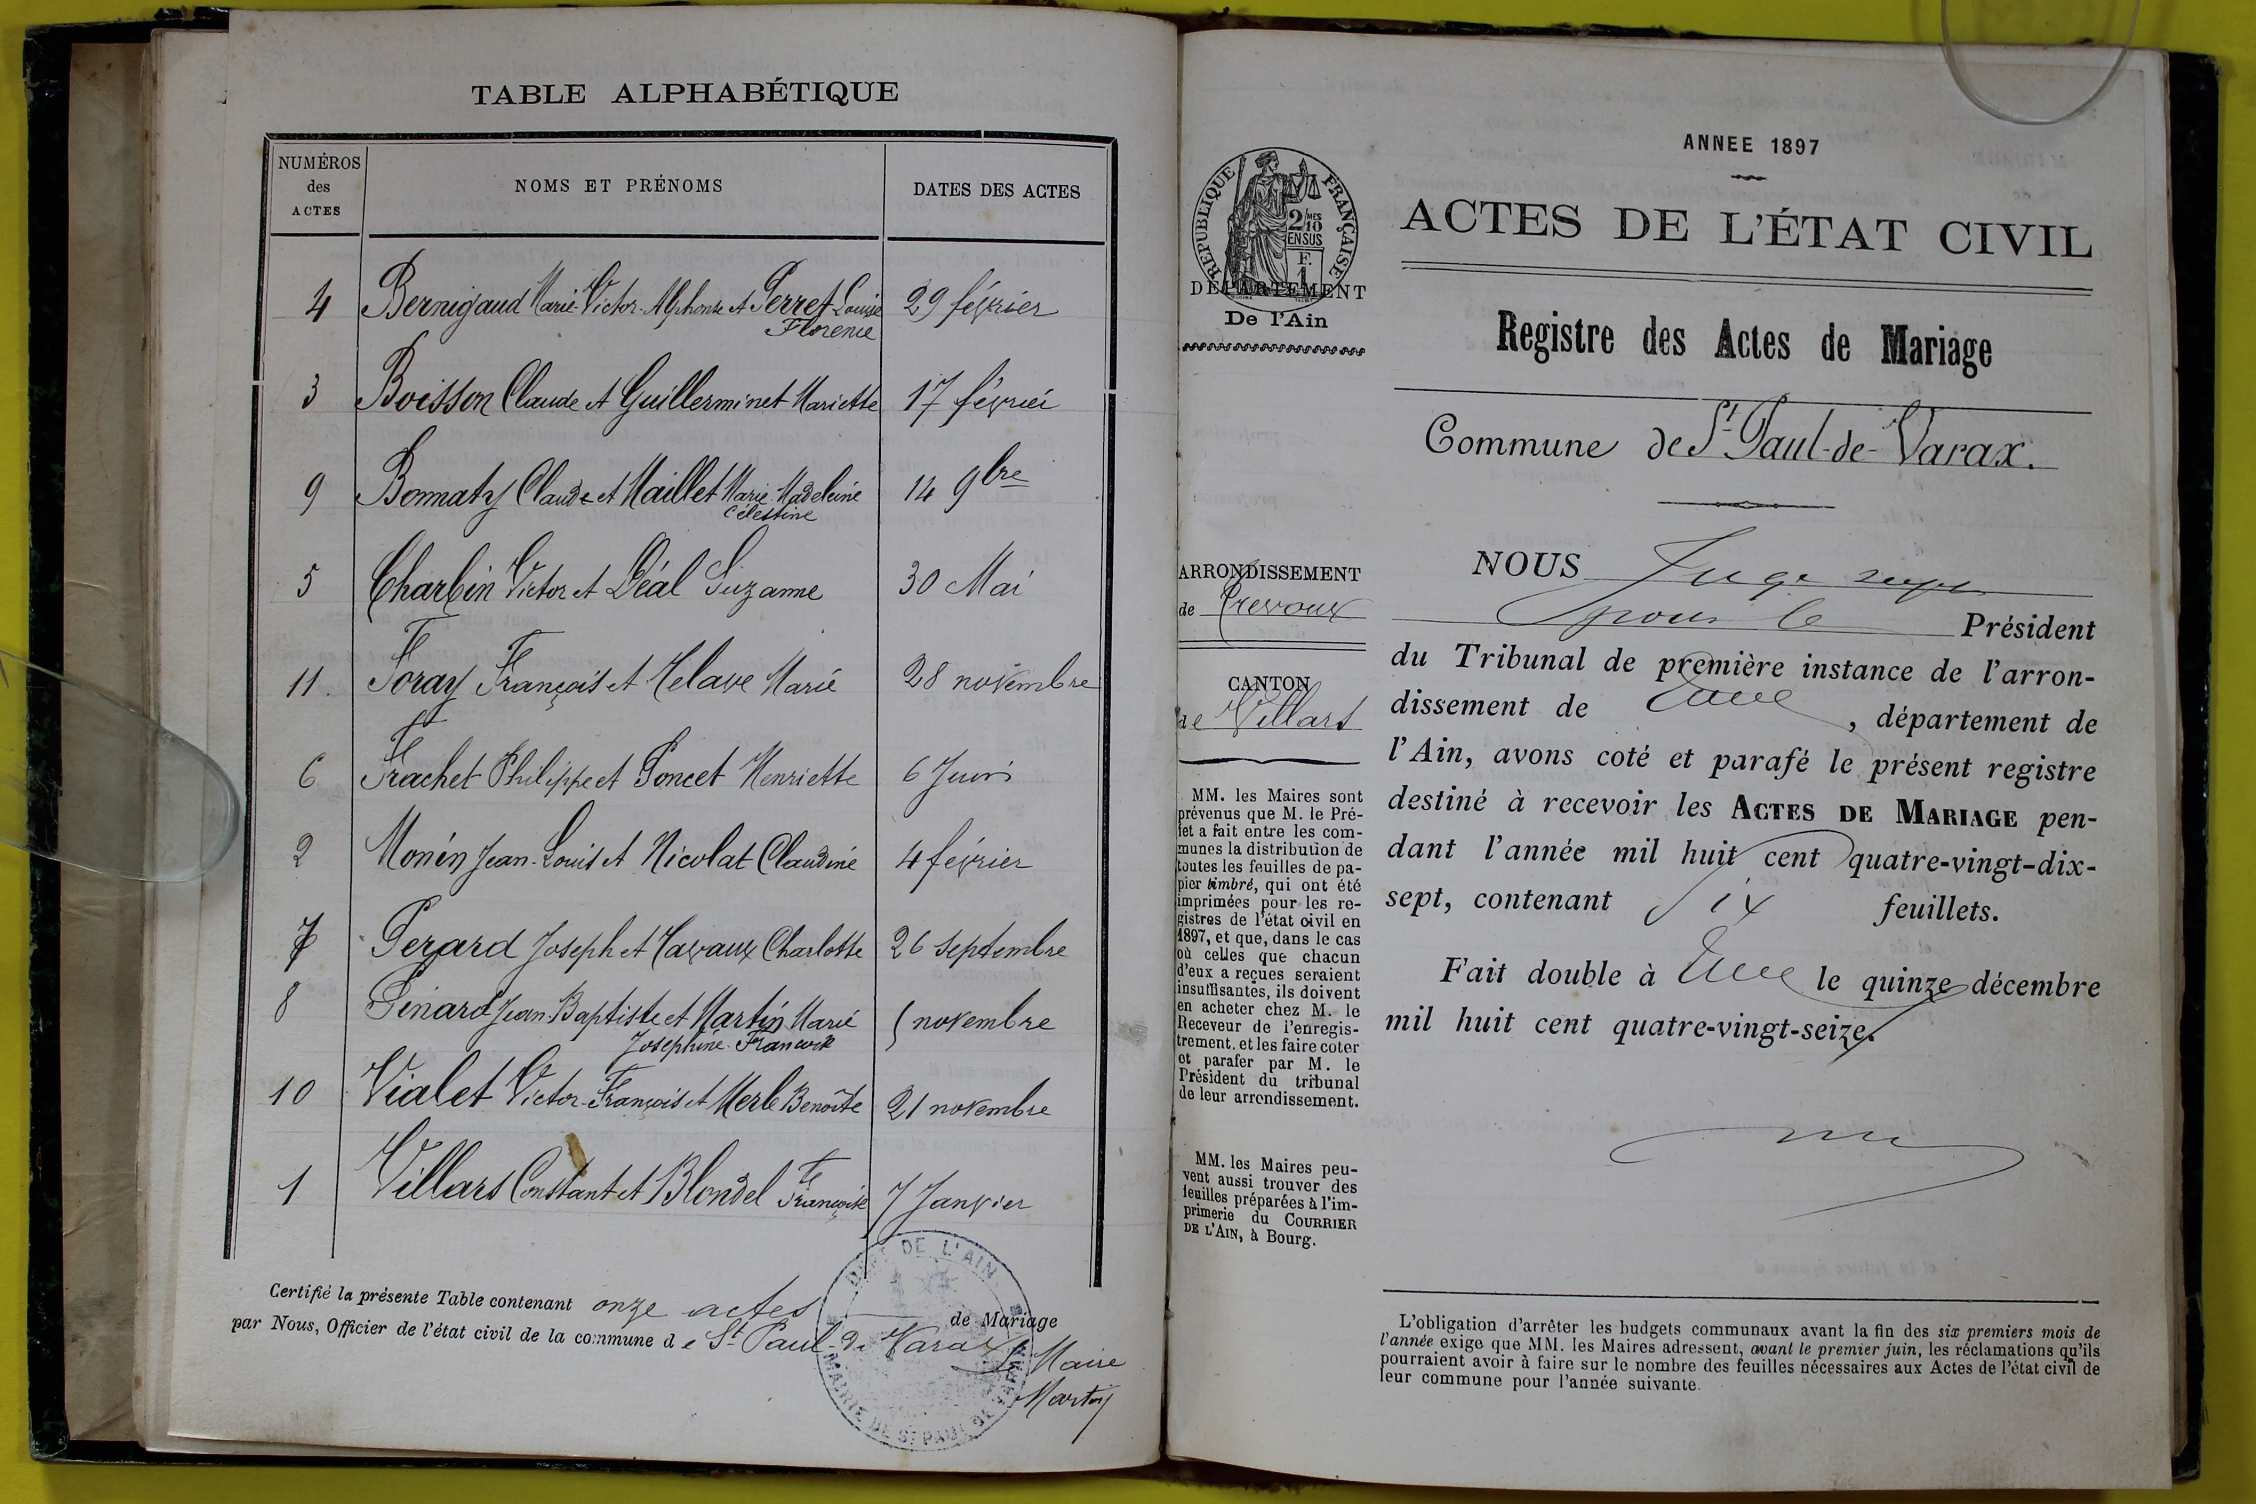 TABLE ALPHABÉTIQUE
NUMÉROS
des
ACTES
NOMS ET PRÉNOMS
DATES DES ACTES
4 Bernigaud Marie Victor Alphonse et Perret Louise 29 février
Florence
3 Boisson Claude et Guillerminet Mariette 17 février
9 Bonnaty Claude et Maillet Marie Madeleine 14 9bre
Célestine
5 Charbin Victor et Déal Suzanne 30 Mai
11. Foray François et Velave Marie 28 novembre
6 Frachet Philippe et Poncet Henriette 6 Juin
2 Monin Jean-Louis et Nicolat Claudine 4 février
7 Perard Joseph et Favaux Charlotte 26 septembre
8 Pinard Jean-Baptiste et Martin Marie 5 novembre
Josephine Francoise
10 Vialet Victor-François et Merle Benoîte 21 novembre
1 Villars Constant et Blondel Françoise 7 Janvier
Certifié la présente Table contenant onze actes de Mariage
par Nous, Officier de l'état civil de la commune de St Paul-de-Varax
Maire
Martin
DEPT DE L'AIN
MAIRIE DE ST PAUL DE VARAX
ANNEE 1897
ACTES DE L'ÉTAT CIVIL
Registre des Actes de Mariage
Commune de St Paul-de-Varax.
RÉPUBLIQUE FRANÇAISE
2/10MES
EN SUS
F.
1
DÉPARTEMENT
De l'Ain
ARRONDISSEMENT
de Trevoux
CANTON
de Villars
MM. les Maires sont
prévenus que M. le Pré-
fet a fait entre les com-
munes la distribution de
toutes les feuilles de pa-
pier timbré, qui ont été
imprimées pour les re-
gistres de l'état civil en
1897, et que, dans le cas
où celles que chacun
d'eux a reçues seraient
insuffisantes, ils doivent
en acheter chez M. le
Receveur de l'enregis-
trement. et les faire coter
et parafer par M. le
Président du tribunal
de leur arrondissement.
MM. les Maires peu-
vent aussi trouver des
feuilles préparées à l'im-
primerie du COURRIER
DE L'AIN, à Bourg.
NOUS Juge
pour le Président
du Tribunal de première instance de l'arron-
dissement de , département de
l'Ain, avons coté et parafé le présent registre
destiné à recevoir les ACTES DE MARIAGE pen-
dant l'année mil huit cent quatre-vingt-dix-
sept, contenant Six feuillets.
Fait double à le quinze décembre
mil huit cent quatre-vingt-seize.
L'obligation d'arrêter les budgets communaux avant la fin des six premiers mois de
l'année exige que MM. les Maires adressent, avant le premier juin, les réclamations qu'ils
pourraient avoir à faire sur le nombre des feuilles nécessaires aux Actes de l'état civil de
leur commune pour l'année suivante.